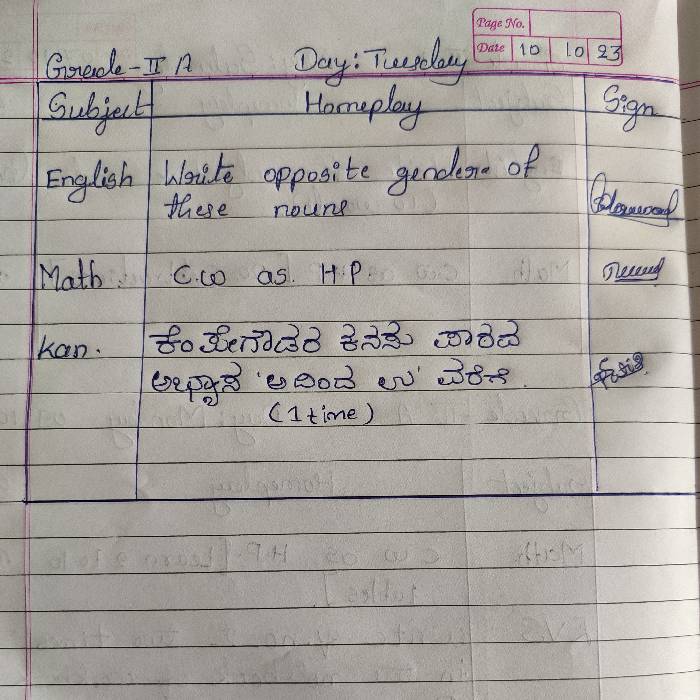 Page No.
Date 10 10 23
Grade-II A Day: Tuesday
Subject Homeplay Sign
English Write opposite genders of
these nouns
Math C.W as H.P
Kan. ಕೆಂಪೇಗೌಡರ ಕನಸು ಪಾಠದ
ಅಭ್ಯಾಸ 'ಅ'ದಿಂದ 'ಉ' ವರೆಗೆ.
(1 time)